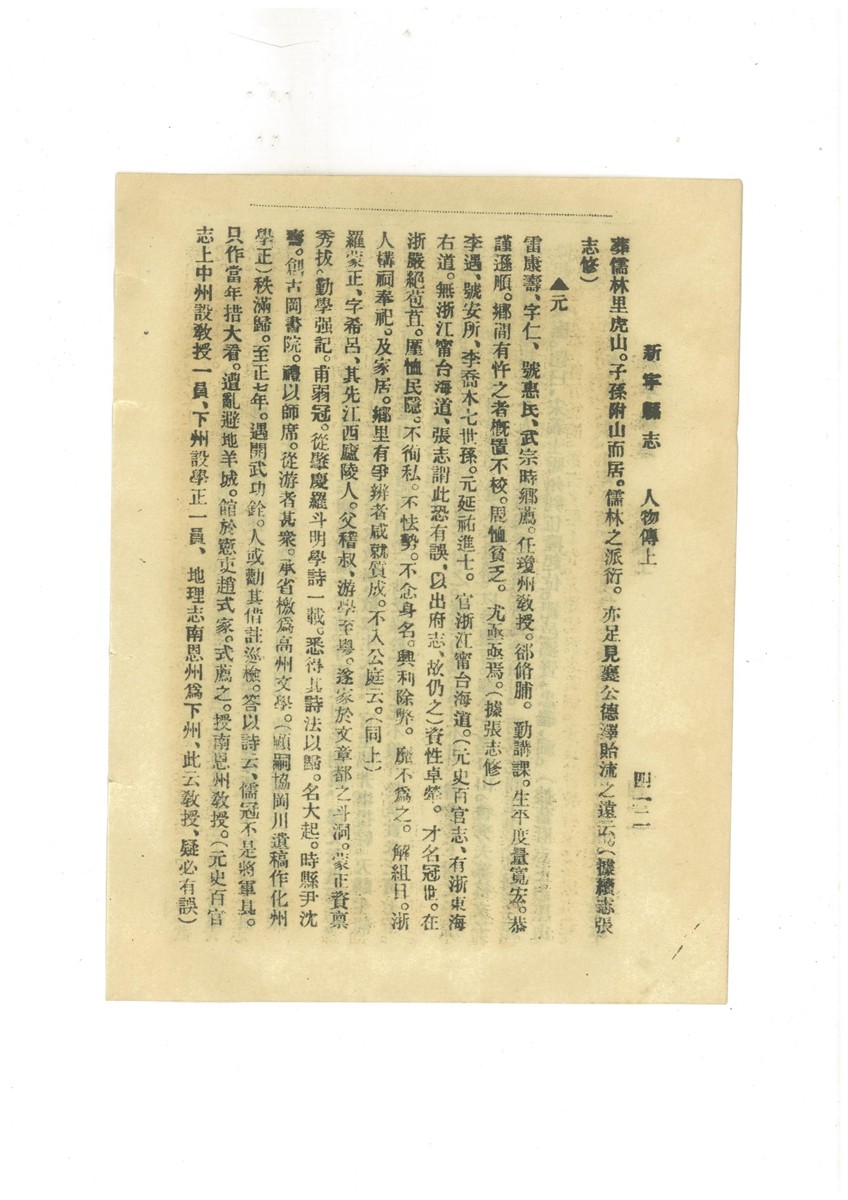 新寧縣志　人物傳上　四一二
葬儒林里虎山。子孫附山而居。儒林之派衍。亦足見襄公德澤貽流之遠云。（據續志張
志修）
▲元
雷康壽、字仁、號惠民、武宗時鄉薦。任瓊州教授。郤脩脯。勤講課。生平度量寬宏。恭
謹遜順。鄉間有忤之者概置不校。周恤貧乏。尤亟亟焉。（據張志修）
李遇、號安所、李喬木七世孫。元延祐進士。官浙江甯台海道。（元史百官志、有浙東海
右道。無浙江甯台海道、張志謂此恐有誤、以出府志、故仍之）資性卓犖。才名冠世。在
浙嚴絕苞苴。厪恤民隱。不徇私。不怯勢。不念身名。興利除弊。靡不為之。解組日。浙
人構祠奉祀。及家居。鄉里有爭辨者咸就質成。不入公庭云。（同上）
羅蒙正、字希呂、其先江西廬陵人。父稽叔、游學至粵。遂家於文章都之斗洞。蒙正資禀
秀拔。勤學强記。甫弱冠。從肇慶羅斗明學詩一載。悉得其詩法以歸。名大起。時縣尹沈
壽。創古岡書院。禮以師席。從游者甚衆。承省檄爲高州文學。（顧嗣協岡川遺稿作化州
學正）秩滿歸。至正七年。遇開武功銓。人或勸其借註巡檢。答以詩云、儒冠不是將軍具。
只作當年措大看。遭亂避地羊城。館於憲吏趙式家。式薦之。授南恩州教授。（元史百官
志上中州設教授一員、下州設學正一員、地理志南恩州爲下州、此云教授、疑必有誤）